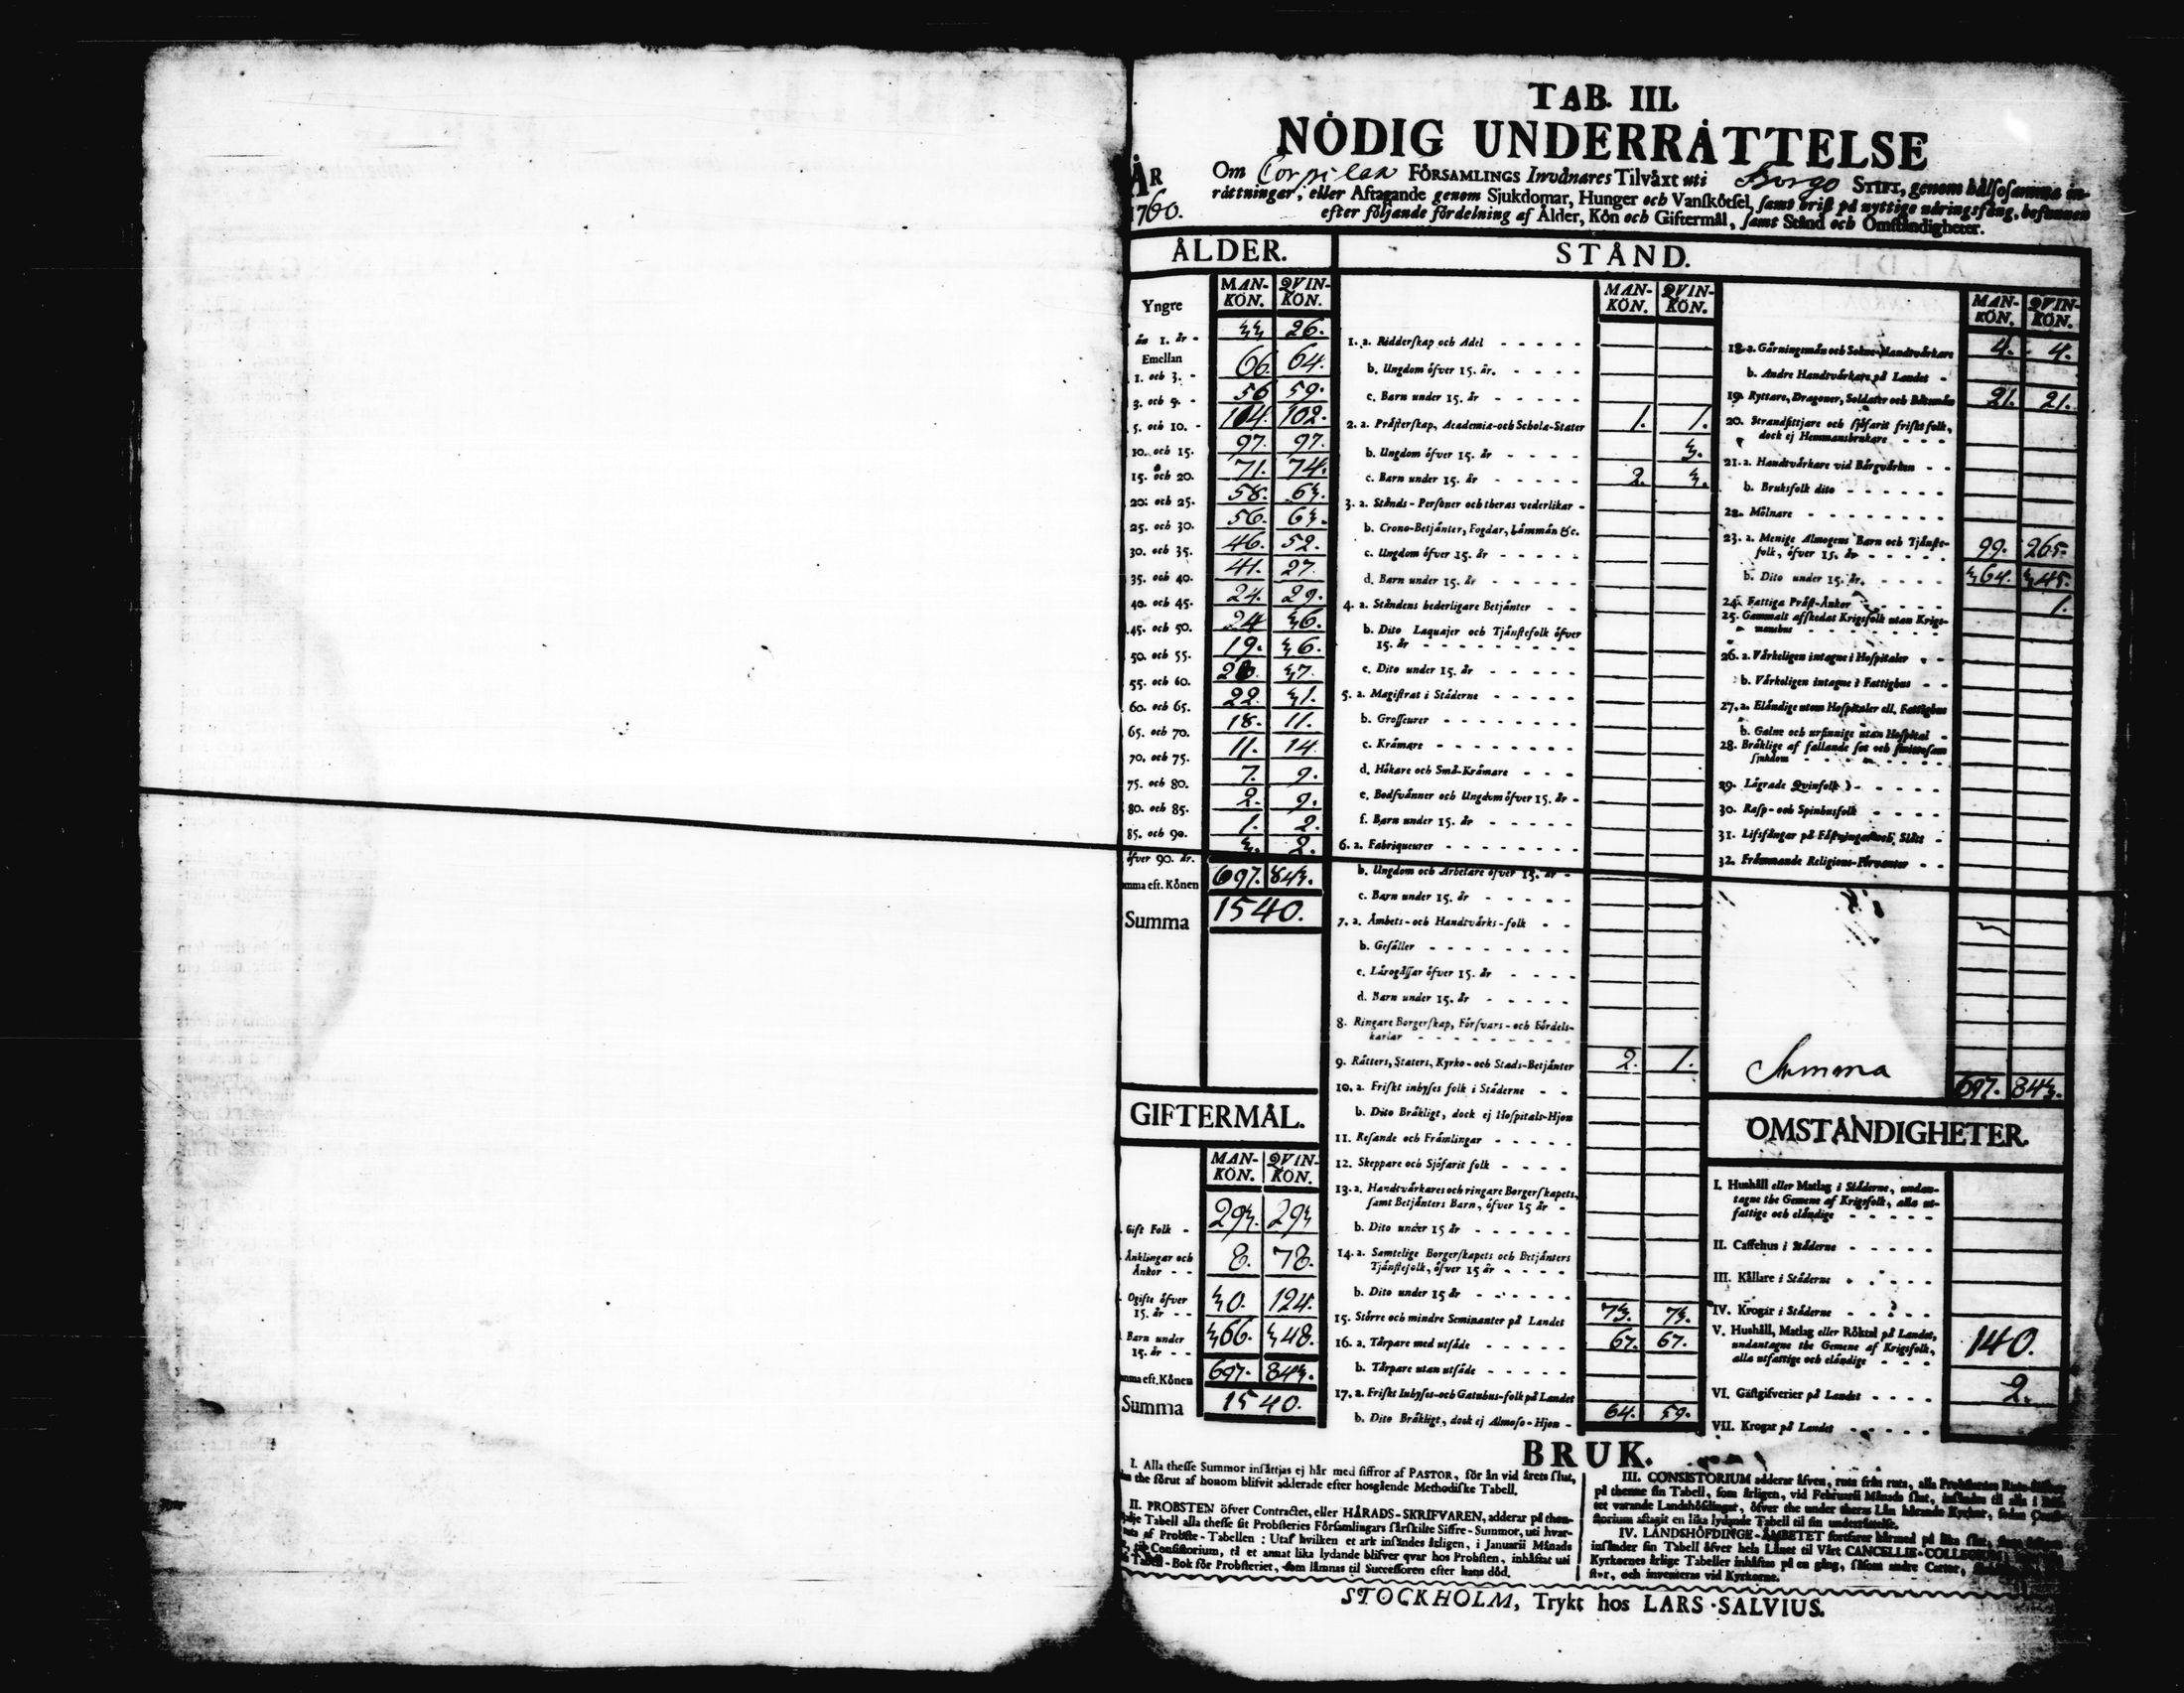 TAB. III.
NÖDIG UNDERRÄTTELSE
ÅR 1760.
Om Corpilax FÖRSAMLINGS Invånares Tilväxt uti Borgo STIFT, genom hälsosamma in-
rättningar, eller Aftagande genom Sjukdomar, Hunger och Vanskötsel, samt brist på nyttige näringsfång, befunnen
efter följande fördelning af Ålder, Kön och Giftermål, samt Stånd och Omständigheter.
ÅLDER.
Yngre MAN-KÖN. QVIN-KÖN.
än 1. år - 33 26.
Emellan
1. och 3. - 66. 64.
3. och 5. - 56 59.
5. och 10. - 104. 102.
10. och 15. 97. 97.
15. och 20. 71. 74.
20. och 25. 58. 63.
25. och 30. 56. 63.
30. och 35. 46. 52.
35. och 40. 41. 27.
40. och 45. 24. 29.
45. och 50. 24 36.
50. och 55. 19. 36.
55. och 60. 37.
60. och 65. 22. 31.
65. och 70. 18. 11.
70. och 75. 11. 14.
75. och 80. 7. 9.
80. och 85. 2. 9.
85. och 90. 1. 2.
öfver 90. år. 3. 2.
mma eft. Könen 697. 843.
Summa 1540.
GIFTERMÅL.
MAN-KÖN. QVIN-KÖN.
Gift Folk - 293. 293
Änklingar och Änkor - - 8. 78.
Ogifte öfver 15. år - - 30. 124.
Barn under 15. år - - 366. 348.
mma eft. Könen 697. 843.
Summa 1540.
STÅND.
MAN-KÖN. QVIN-KÖN.
1. a. Ridderskap och Adel
b. Ungdom öfver 15. år.
c. Barn under 15. år
2. a. Prästerskap, Academia- och Schola-Stater 1. 1.
b. Ungdom öfver 15. år 3.
c. Barn under 15. år 2. 3.
3. a. Stånds-Personer och theras vederlikar
b. Crono-Betjänter, Fogdar, Länsmän &c.
c. Ungdom öfver 15. år
d. Barn under 15. år
4. a. Ståndens hederligare Betjänter
b. Dito Laquajer och Tjänstefolk öfver
15. år
c. Dito under 15. år
5. a. Magistrat i Städerne
b. Grosseurer
c. Krämare
d. Hökare och Små-Krämare
e. Bodsvänner och Ungdom öfver 15. år
f. Barn under 15. år
6. a. Fabriqueurer
b. Ungdom och Arbetare öfver 15. år
c. Barn under 15. år
7. a. Ämbets- och Handtvärks-folk
b. Gesäller
c. Lärogåssar öfver 15. år
d. Barn under 15. år
8. Ringare Borgerskap, Försvars- och Fördels-
karlar
9. Rätters, Staters, Kyrko- och Stads-Betjänter 2. 1.
10. a. Friskt inhyses folk i Städerne
b. Dito Bräkligt, dock ej Hospitals-Hjon
11. Resande och Främlingar
12. Skeppare och Sjöfarit folk
13. a. Handtvärkares och ringare Borgerskapets,
samt Betjänters Barn, öfver 15 år
b. Dito under 15 år
14. a. Samtelige Borgerskapets och Betjänters
Tjänstefolk, öfver 15 år
b. Dito under 15 år
15. Större och mindre Heminanter på Landet 73. 73.
16. a. Tårpare med utsäde 67. 67.
b. Tårpare utan utsäde
17. a. Friskt Inhyses- och Gatuhus-folk på Landet
b. Dito Bräkligt, dock ej Almoso-Hjon 64. 59.
MAN-KÖN. QVIN-KÖN.
18. a. Gärningsmän och Sokne-Handtvärkare 4. 4.
b. Andre Handtvärkare på Landet
19. Ryttare, Dragoner, Soldater och Båtsmän 21. 21.
20. Strandsittjare och sjöfarit friskt folk,
dock ej Hemmansbrukare
21. a. Handtvärkare vid Bärgvärken
b. Bruksfolk dito
22. Mölnare
23. a. Menige Almogens Barn och Tjänste-
folk, öfver 15. år 99. 265.
b. Dito under 15. år. 364. 345.
24. Fattiga Präst-Änkor 1.
25. Gammalt afskedat Krigsfolk utan Krigs-
manshus
26. a. Värkeligen intagne i Hospitaler
b. Värkeligen intagne i Fattighus
27. a. Eländige utom Hospitaler ell. Fattighus
b. Galne och ursinnige utan Hospital
28. Bräklige af fallande sot och smittosam
sjukdom
29. Lägrade Qvinfolk
30. Rasp- och Spinhusfolk
31. Lifsfångar på Fästningar och Slått
32. Främmande Religions-Förvanter
Summa 697. 843.
OMSTÄNDIGHETER.
I. Hushåll eller Matlag i Städerne, undan-
tagne the Gemene af Krigsfolk, alla ut-
fattige och eländige
II. Caffehus i Städerne
III. Källare i Städerne
IV. Krogar i Städerne
V. Hushåll, Matlag eller Röktal på Landet,
undantagne the Gemene af Krigsfolk,
alla utfattige och eländige 140.
VI. Gästgifverier på Landet 2.
VII. Krogar på Landet
BRUK.
I. Alla thesse Summor insättjas ej här med siffror af PASTOR, för än vid årets slut,
the förut af honom blifvit adderade efter hosgående Methodiske Tabell.
II. PROBSTEN öfver Contractet, eller HÄRADS-SKRIFVAREN, adderar på then-
Tabell alla thesse sit Probsteries Församlingars särskilte Siffre-Summor, uti hvar-
af Probste-Tabellen: Utaf hvilken et ark insändes årligen, i Januarii Månads
til Consistorium, tå et annat lika lydande blifver qvar hos Probsten, inhäftat uti
Tabell-Bok för Probsteriet, som lämnas til Successoren efter hans död.
III. CONSISTORIUM adderar äfven, ruta från ruta, alla
på thenne sin Tabell, som årligen, vid Februarii Månads slut,
varande Landshöfdingar, öfver the under theras Län hörande Kyrkor, sedan
aftagit en lika lydande Tabell til sin underrättelse.
IV. LANDSHÖFDINGE-ÄMBETET fortfarer härmed på lika sätt,
insänder sin Tabell öfver hela Länet til Vårt CANCELLIE-COLLEGIUM
Kyrkornes årlige Tabeller inhäftas på en gång, såsom andre Cartor,
och inventeras vid Kyrkorne.
STOCKHOLM, Trykt hos LARS SALVIUS.